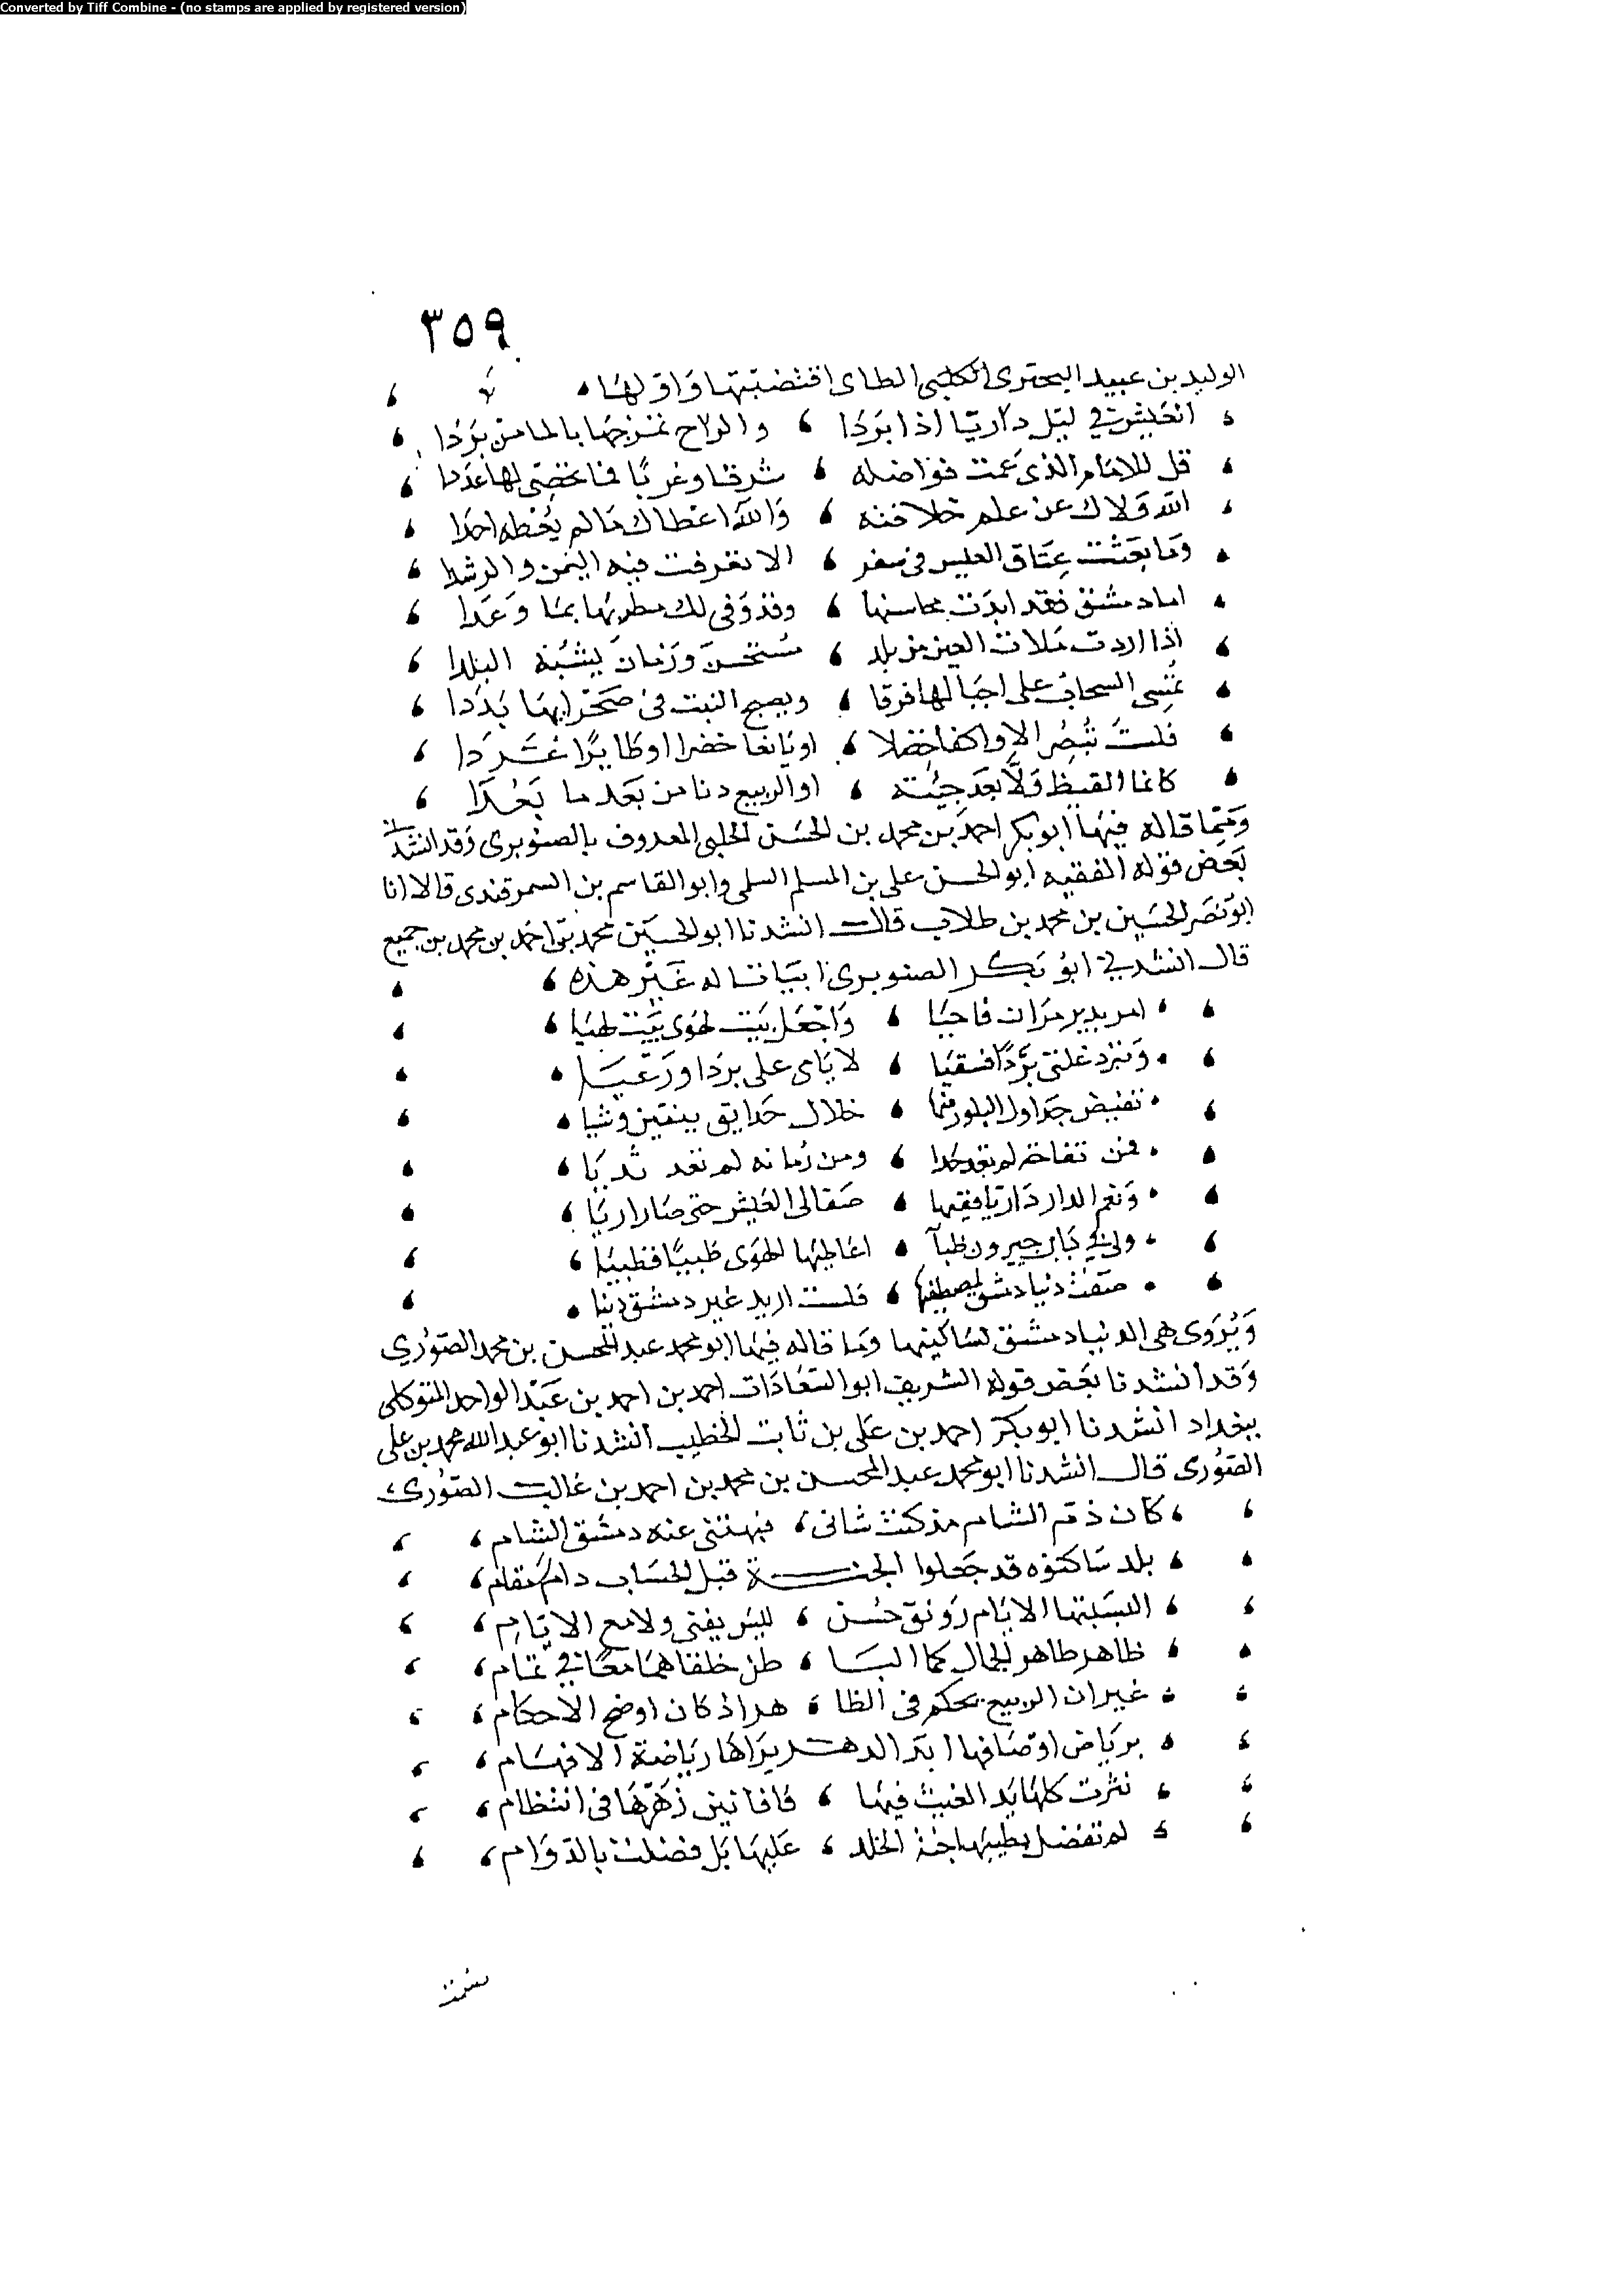 Converted by Tiff Combine - (no stamps are applied by registered version)
٣٥٩
الوليد بن عبيد البحترى الكلبى الطاى اقتضبتها واولها
العيش في ليل داريا اذا بردا والراح نمزجها بالما من بردا
قل للامام الذى عمت فواضله شرقا وغربا فما نحصى لها عددا
الله ولاك عن علم خلافته والله اعطاك ما لم يعطه احدا
وما بعثت عتاق العيس فى سفر الا تعرفت فيه اليمن والرشدا
اما دمشق فقد ابدت محاسنها وقد وفى لك مطريها بما وعدا
اذا اردت ملات العين من بلد مستحسن وزمان يشبه البلدا
تمسى السحاب على اجبالها فرقا ويصبح النبت فى صحرايها بددا
فلست تبصر الا واكفا خضلا او يانعا خضرا او طايرا غردا
كانما القيظ ولا بعد جيئته او الربيع دنا من بعد ما بعدا
ومما قاله فيها ابو بكر احمد بن محمد بن الحسن الحلبى المعروف بالصنوبرى وقد انشدنا
بعض قوله الفقيه ابو الحسن على بن المسلم السلمى وابو القاسم بن السمرقندى قالا انا
ابو نصر الحسين بن محمد بن طلاب قال انشدنا ابو الحسين محمد بن احمد بن محمد بن جميع
قال انشدني ابو بكر الصنوبرى ابياتا له غير هذه
امر بدير مران فاحيا واجعل بيت لهوى بيت لهيا
وتبرد غلتى بردا فسقيا لاياى على بردا ورعيا
تفيض جداول البلور فيها خلال حدايق ينبتن وشيا
فمن تفاحة لم تعد خدا ومن رمانه لم تعد ثديا
ونعم الدار داريا ففيها صفا لى العيش حتى صار اريا
ولى فى باب جيرون ظبآ اعاطيها الهوى ظبيا فظبيا
صفت دنيا دمشق لمصطفيها فلست اريد غير دمشق دنيا
ويروى هى الدنيا دمشق لساكنيها وما قاله فيها ابو محمد عبد المحسن بن محمد الصورى
وقد انشدنا بعض قوله الشريف ابو السعادات احمد بن احمد بن عبد الواحد المتوكلى
ببغداد انشدنا ابو بكر احمد بن على بن ثابت الخطيب انشدنا ابو عبد الله محمد بن على
الصورى قال انشدنا ابو محمد عبد المحسن بن محمد بن احمد بن غالب الصورى
كان ذم الشام مذ كنت شانى فنهتنى عنه دمشق الشام
بلد ساكنوه قد جعلوا الجنة قبل الحساب دار مقام
البستها الايام رونق حسن ليس يفنى ولا مع الايام
ظاهر طاهر الجمال كما البسا طن خلقا هما معا في تمام
غير ان الربيع يحكم فى الظا هر اذ كان اوضح الاحكام
برياض اوصافها ابد الدهر يراها رياضة الافهام
نثرت كلها يد الغيث فيها فافانين زهرها فى انتظام
لم تفضل بطيبها جنة الخلد عليها بل فضلت بالدوام